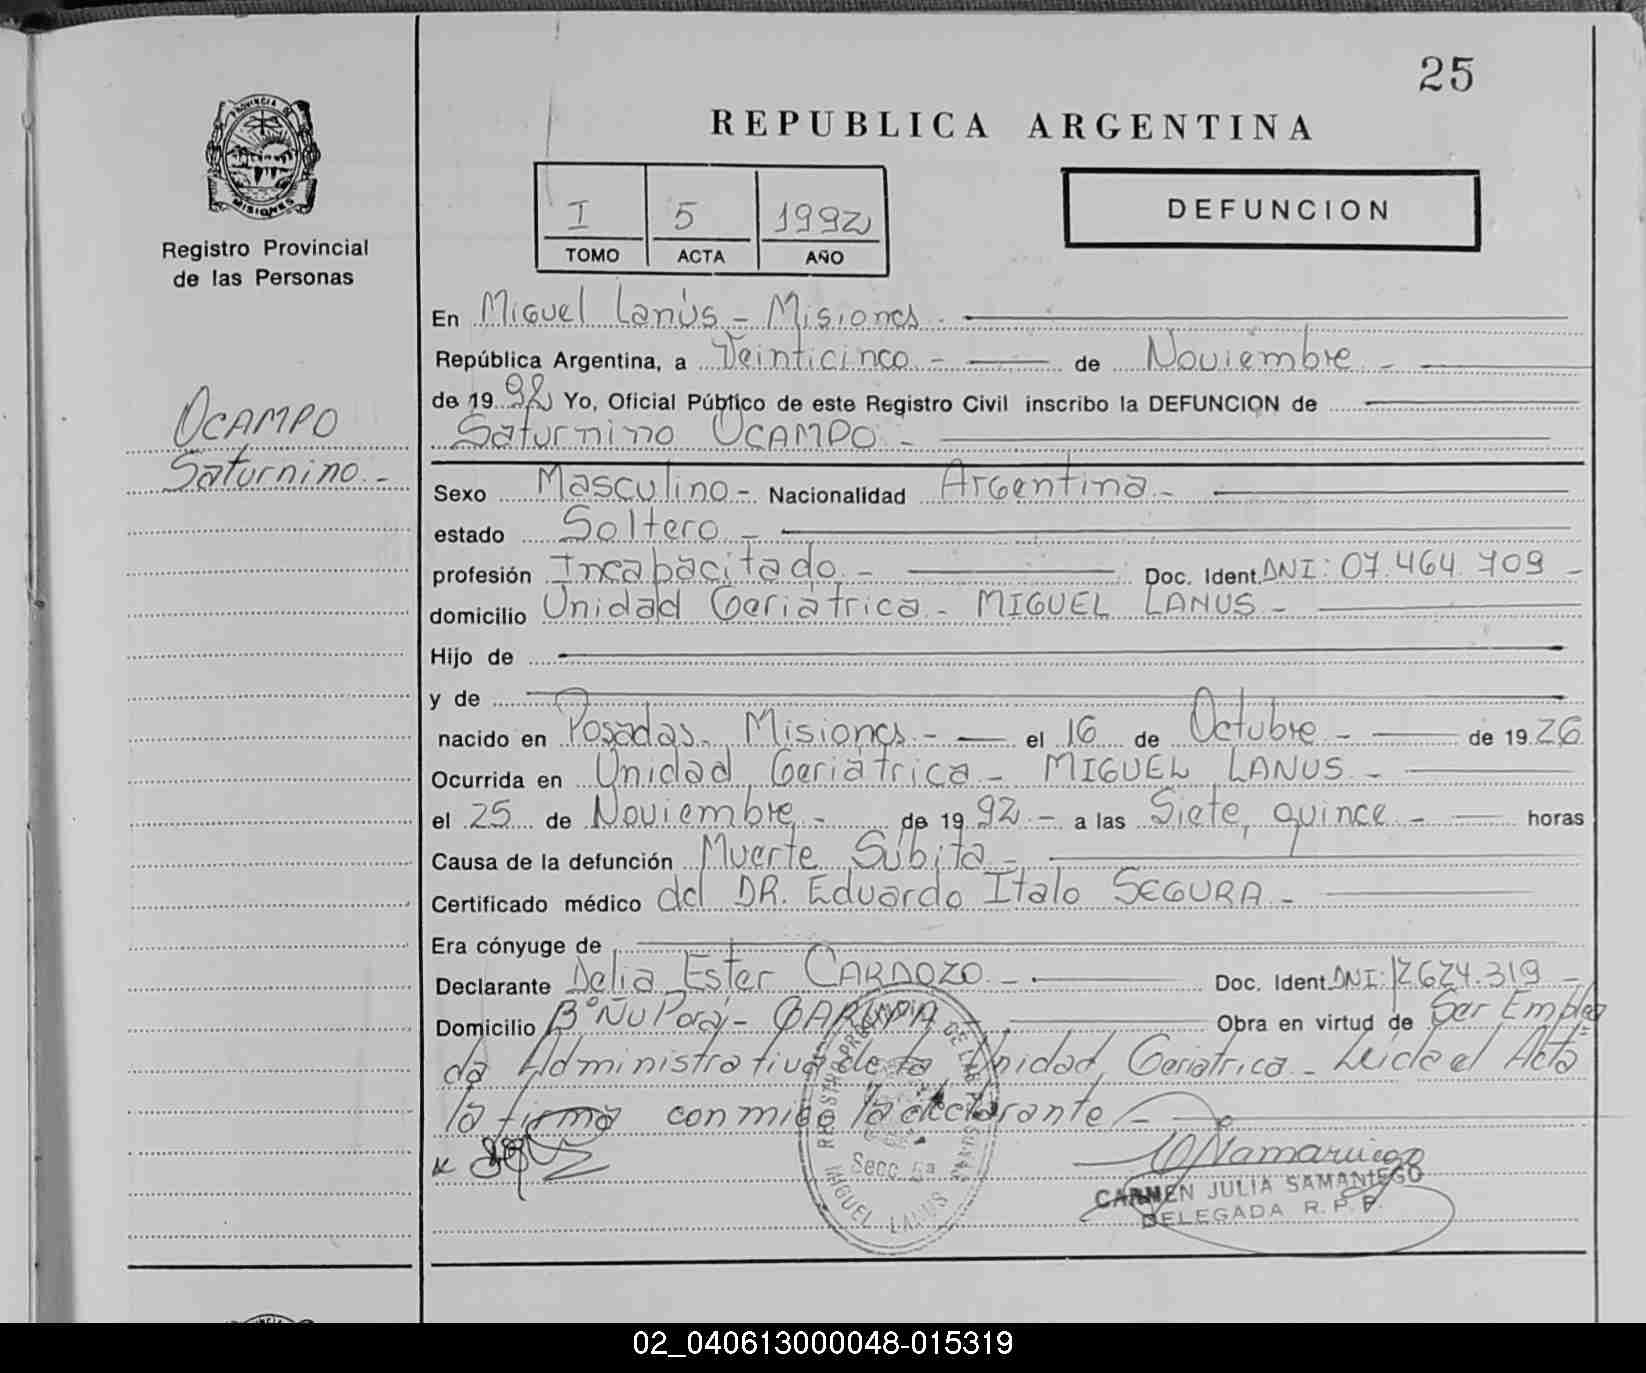 25
PROVINCIA DE
MISIONES
Registro Provincial
de las Personas
REPUBLICA ARGENTINA
I 5 1992
TOMO ACTA AÑO
DEFUNCION
OCAMPO
Saturnino.-
En Miguel Lanús - Misiones.
República Argentina, a Veinticinco - de Noviembre -
de 1992 Yo, Oficial Público de este Registro Civil inscribo la DEFUNCION de
Saturnino OCAMPO -
Sexo Masculino - Nacionalidad Argentina -
estado Soltero -
profesión Incapacitado - Doc. Ident. DNI: 07.464.709 -
domicilio Unidad Geriátrica - MIGUEL LANUS -
Hijo de
y de
nacido en Posadas, Misiones - el 16 de Octubre - de 1926
Ocurrida en Unidad Geriátrica - MIGUEL LANUS -
el 25 de Noviembre - de 1992 - a las Siete, quince - horas
Causa de la defunción Muerte Súbita -
Certificado médico del DR. Eduardo Italo SEGURA -
Era cónyuge de
Declarante Delia Ester CARDOZO - Doc. Ident. DNI: 12624.319 -
Domicilio B° Ñu Porá - GARUPA - Obra en virtud de Ser Emplea
da Administrativa de la Unidad Geriatrica - Leida el Acta
la firma conmigo la declarante -
REGISTRO PROVINCIAL DE LAS PERSONAS
Secc. 5a
MIGUEL LANUS
CARMEN JULIA SAMANIEGO
DELEGADA R. P. P.
02_040613000048-015319